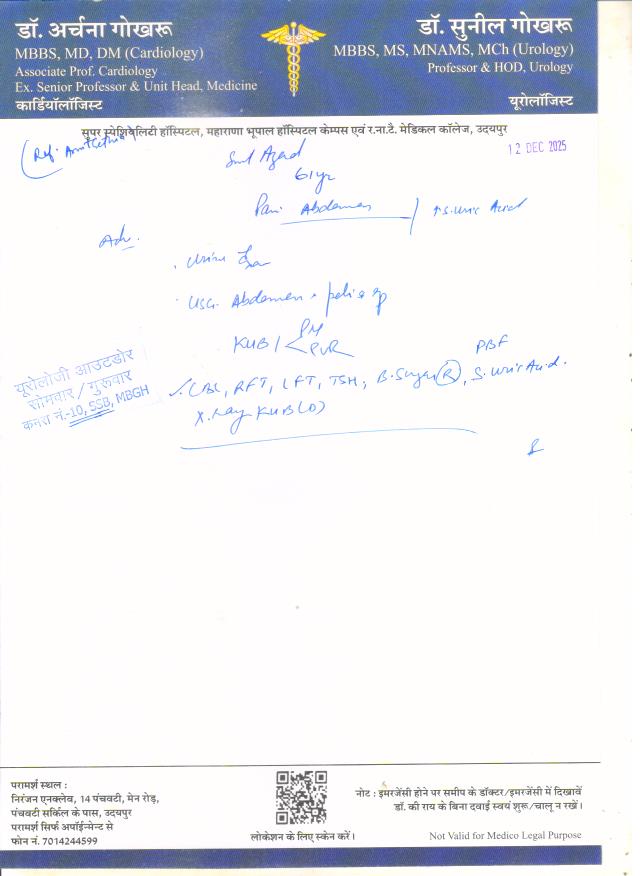 डॉ. अर्चना गोखरू
MBBS, MD, DM (Cardiology)
Associate Prof. Cardiology
Ex. Senior Professor & Unit Head, Medicine
कार्डियॉलॉजिस्ट
डॉ. सुनील गोखरू
MBBS, MS, MNAMS, MCh (Urology)
Professor & HOD, Urology
यूरोलॉजिस्ट
सुपर स्पेशियलिटी हॉस्पिटल, महाराणा भूपाल हॉस्पिटल केम्पस एवं र.ना.टै. मेडिकल कॉलेज, उदयपुर
Ref:
12 DEC 2025
Azad
61yr
Pain Abdomen / ↑ S. Uric Acid
Adv.
. Urine
. USG. Abdomen
KUB / PM
PVR
PBF
CBC, RFT, LFT, TSH, B. Sugar (R), S. Uric Acid.
X. Ray KUB
यूरोलोजी आउटडोर
सोमवार / गुरूवार
कमरा नं.-10, SSB, MBGH
परामर्श स्थल :
निरंजन एनक्लेव, 14 पंचवटी, मेन रोड़,
पंचवटी सर्किल के पास, उदयपुर
परामर्श सिर्फ अपॉईन्मेन्ट से
फोन नं. 7014244599
लोकेशन के लिए स्केन करें।
नोट : इमरजेंसी होने पर समीप के डॉक्टर/इमरजेंसी में दिखावें
डॉ. की राय के बिना दवाई स्वयं शुरू/चालू न रखें।
Not Valid for Medico Legal Purpose